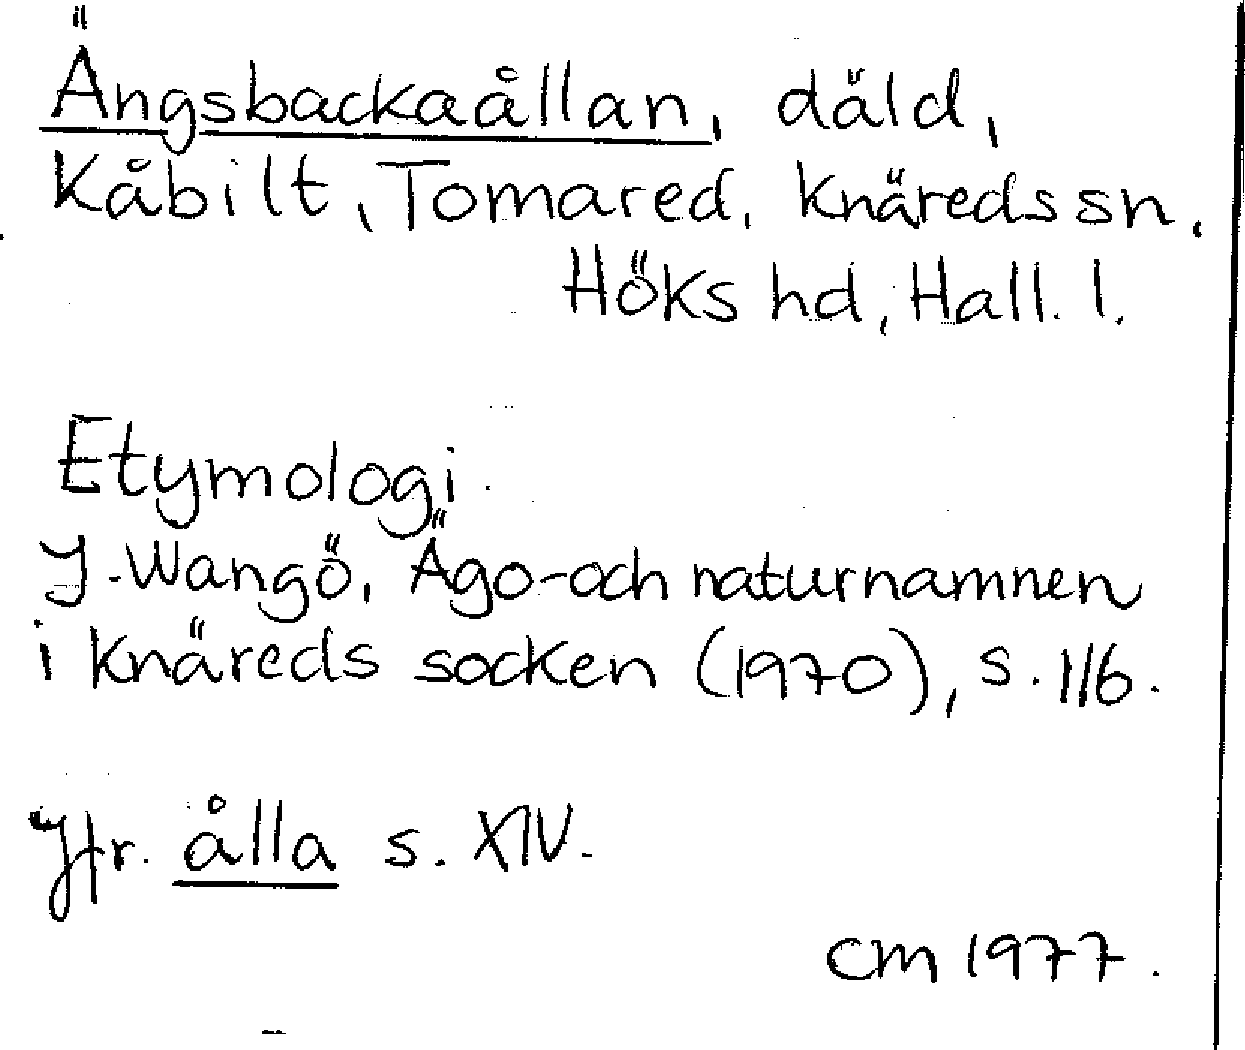 Ängsbackaållan, däld,
Kåbilt, Tomared, Knäreds sn,
Höks hd, Hall. l.
Etymologi
J. Wangö, Ägo- och naturnamnen
i Knäreds socken (1970), s. 116.
Jfr. ålla s. XIV.
CM 1977.